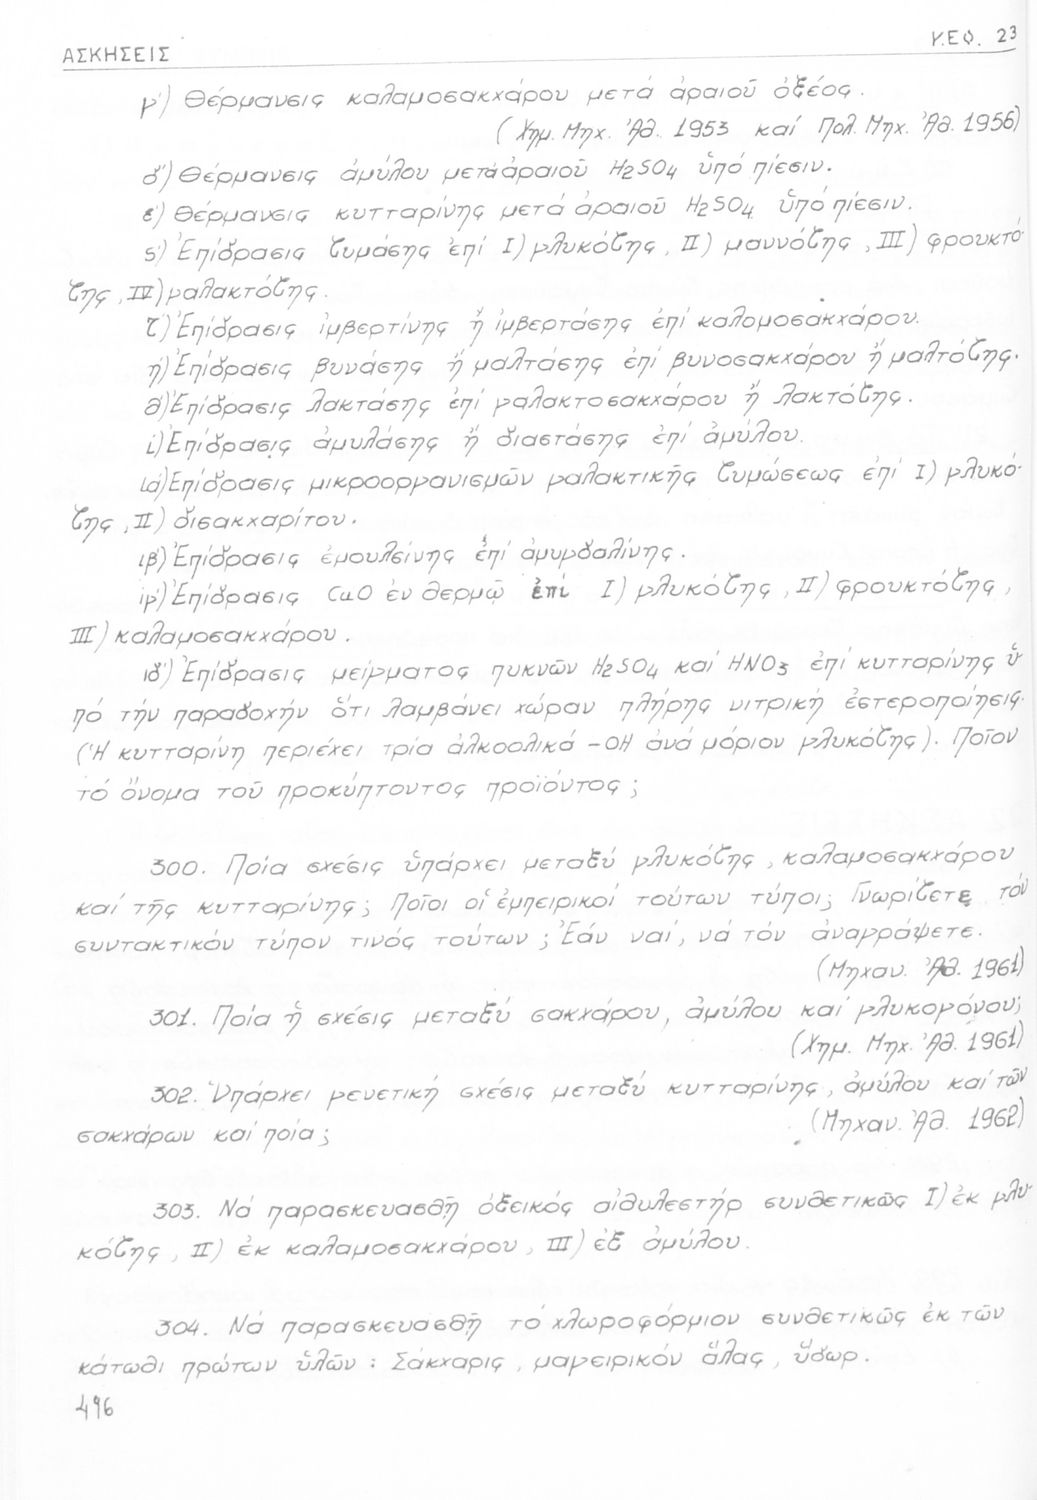 ΑΣΚΗΣΕΙΣ
ΚΕΦ. 23
γ') Θέρμανσις καλαμοσακχάρου μετά ἀραιοῦ ὀξέος.
(Χημ. Μηχ. Ἀθ. 1953 καί Πολ. Μηχ. Ἀθ. 1956)
δ') Θέρμανσις ἀμύλου μετά ἀραιοῦ H2SO4 ὑπό πίεσιν.
ε') Θέρμανσις κυτταρίνης μετά ἀραιοῦ H2SO4 ὑπό πίεσιν.
ς') Ἐπίδρασις ζυμάσης ἐπί I) γλυκόζης, II) μαννόζης, III) φρουκτό-
ζης, IV) γαλακτόζης.
ζ') Ἐπίδρασις ἰμβερτίνης ἤ ἰμβερτάσης ἐπί καλομοσακχάρου.
η) Ἐπίδρασις βυνάσης ἤ μαλτάσης ἐπί βυνοσακχάρου ἤ μαλτόζης.
θ) Ἐπίδρασις λακτάσης ἐπί γαλακτοσακχάρου ἤ λακτόζης.
ι) Ἐπίδρασις ἀμυλάσης ἤ διαστάσης ἐπί ἀμύλου.
ια) Ἐπίδρασις μικροοργανισμῶν γαλακτικῆς ζυμώσεως ἐπί I) γλυκό-
ζης, II) δισακχαρίτου.
ιβ) Ἐπίδρασις ἐμουλσίνης ἐπί ἀμυγδαλίνης.
ιγ') Ἐπίδρασις CaO ἐν θερμῷ ἐπί I) γλυκόζης, II) φρουκτόζης,
III) καλαμοσακχάρου.
ιδ') Ἐπίδρασις μείγματος πυκνῶν H2SO4 καί HNO3 ἐπί κυτταρίνης ὑ-
πό τήν παραδοχήν ὅτι λαμβάνει χώραν πλήρης νιτρική ἐστεροποίησις.
(Ἡ κυτταρίνη περιέχει τρία ἀλκοολικά -OH ἀνά μόριον γλυκόζης). Ποῖον
τό ὄνομα τοῦ προκύπτοντος προϊόντος;
300. Ποία σχέσις ὑπάρχει μεταξύ γλυκόζης, καλαμοσακχάρου
καί τῆς κυτταρίνης; Ποῖοι οἱ ἐμπειρικοί τούτων τύποι; Γνωρίζετε τόν
συντακτικόν τύπον τινός τούτων; Ἐάν ναί, νά τόν ἀναγράψετε.
(Μηχαν. Ἀθ. 1961)
301. Ποία ἡ σχέσις μεταξύ σακχάρου, ἀμύλου καί γλυκογόνου;
(Χημ. Μηχ. Ἀθ. 1961)
302. Ὑπάρχει γενετική σχέσις μεταξύ κυτταρίνης, ἀμύλου καί τῶν
σακχάρων καί ποία;
(Μηχαν. Ἀθ. 1962)
303. Νά παρασκευασθῇ ὀξεικός αἰθυλεστήρ συνθετικῶς I) ἐκ γλυ-
κόζης, II) ἐκ καλαμοσακχάρου, III) ἐξ ἀμύλου.
304. Νά παρασκευασθῇ τό χλωροφόρμιον συνθετικῶς ἐκ τῶν
κάτωθι πρώτων ὑλῶν: Σάκχαρις, μαγειρικόν ἅλας, ὕδωρ.
496